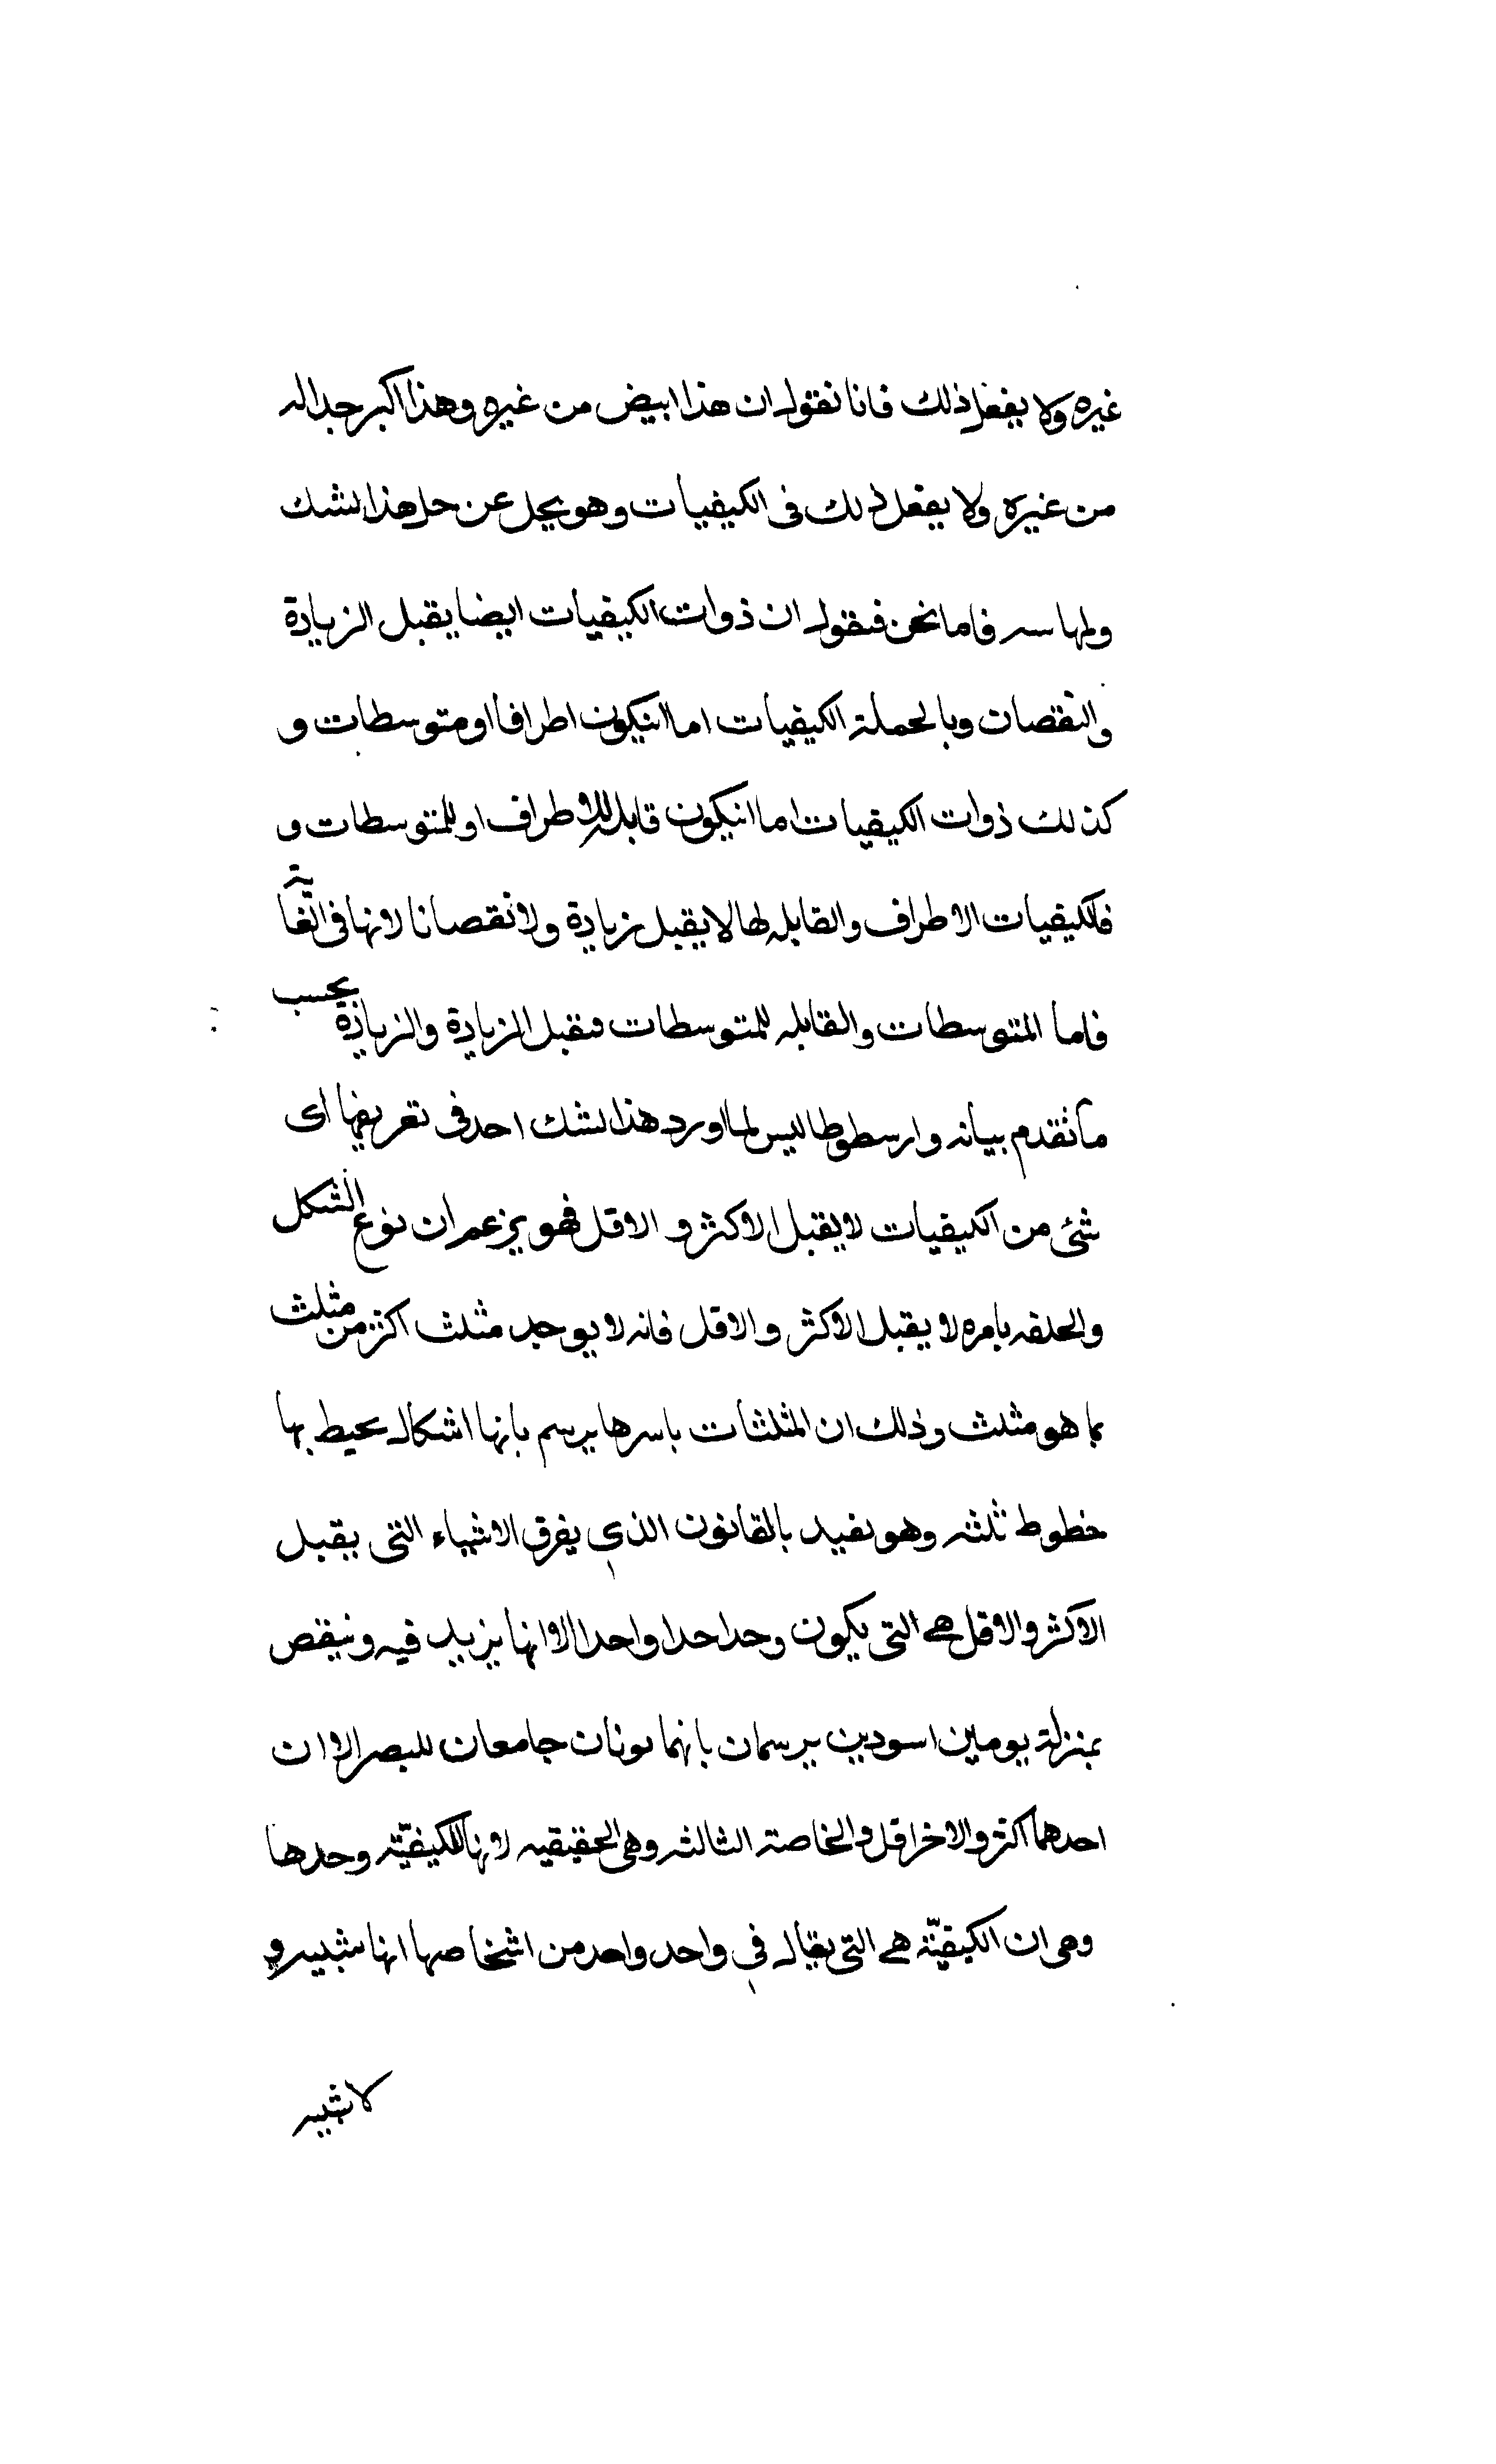 غيره ولا يفعل ذلك فانا نقول ان هذا ابيض من غيره وهذا اكبر جدا له
من غيره ولا يفعل ذلك فى الكيفيات وهو يحل عن حل هذا لشك
فاما نحن فنقول ان ذوات الكيفيات ايضا يقبل الزيادة
والنقصان وبالجملة الكيفيات اما انيكون اطرافا او متوسطات و
كذلك ذوات الكيفيات اما انيكون قابله للاطراف او للمتوسطات و
فلكيفيات الاطراف والقابله لها لا يقبل زيادة ولا نقصانا لانها فى الغاية
فاما المتوسطات والقابله للمتوسطات فيقبل الزيادة والزيادة بحسب
ما تقدم بيانه وارسطوطاليس لما اورد هذا لشك احد فى تعريفها اى
شئ من الكيفيات لا يقبل الاكثر و الاقل فهو يزعم ان نوع الشكل
والحلقه بامره لا يقبل الاكثر والاقل فانه لا يوجد مثلث اكثر من مثلث
بما هو مثلث وذلك ان المثلثات باسرها يرسم بانها اشكال يحيط بها
خطوط ثلثه وهو يفيد بالقانون الذى يفرق الاشياء التى يقبل
الاكثر والاقل هى التى يكون وحدا حدا واحدا الا انها يزيد فيه وينقص
بمنزلة يومين اسودين يرسمان بانهما لونان جامعان للبصر الا ان
احدهما اكثر والاخر اقل والخاصة الثالثه وهى الحقيقيه لانها للكيفيّة وحدها
وهى ان الكيفيّة هى التى يقال فى واحد واحد من اشخاصها انها شبيه و
لا شبيه